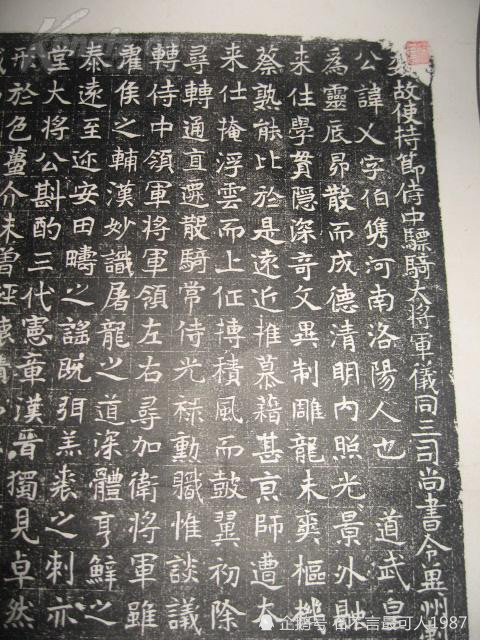 故使持節侍中驃騎大將軍儀同三司尚書令冀州
公諱乂字伯儁河南洛陽人也 道武皇
爲靈辰昴散而成德清明内照光景外融
来往學貫隱深奇文異制雕龍未爽樞機
蔡孰能比於是遠近推慕藉甚京師遭太
来仕掩浮雲而上征摶積風而鼓翼初除
尋轉通直遷散騎常侍光祿勳職惟談議
轉侍中領軍將軍領左右尋加衛將軍雖
濯侯之輔漢妙識屠龍之道深體亨鮮之
泰遠至迩安田疇之謡既弭羔裘之刺亦
堂大將公斟酌三代憲章漢晉獨見卓然
形於色薑介未曾經懷
企鹅号 不言最可人1987